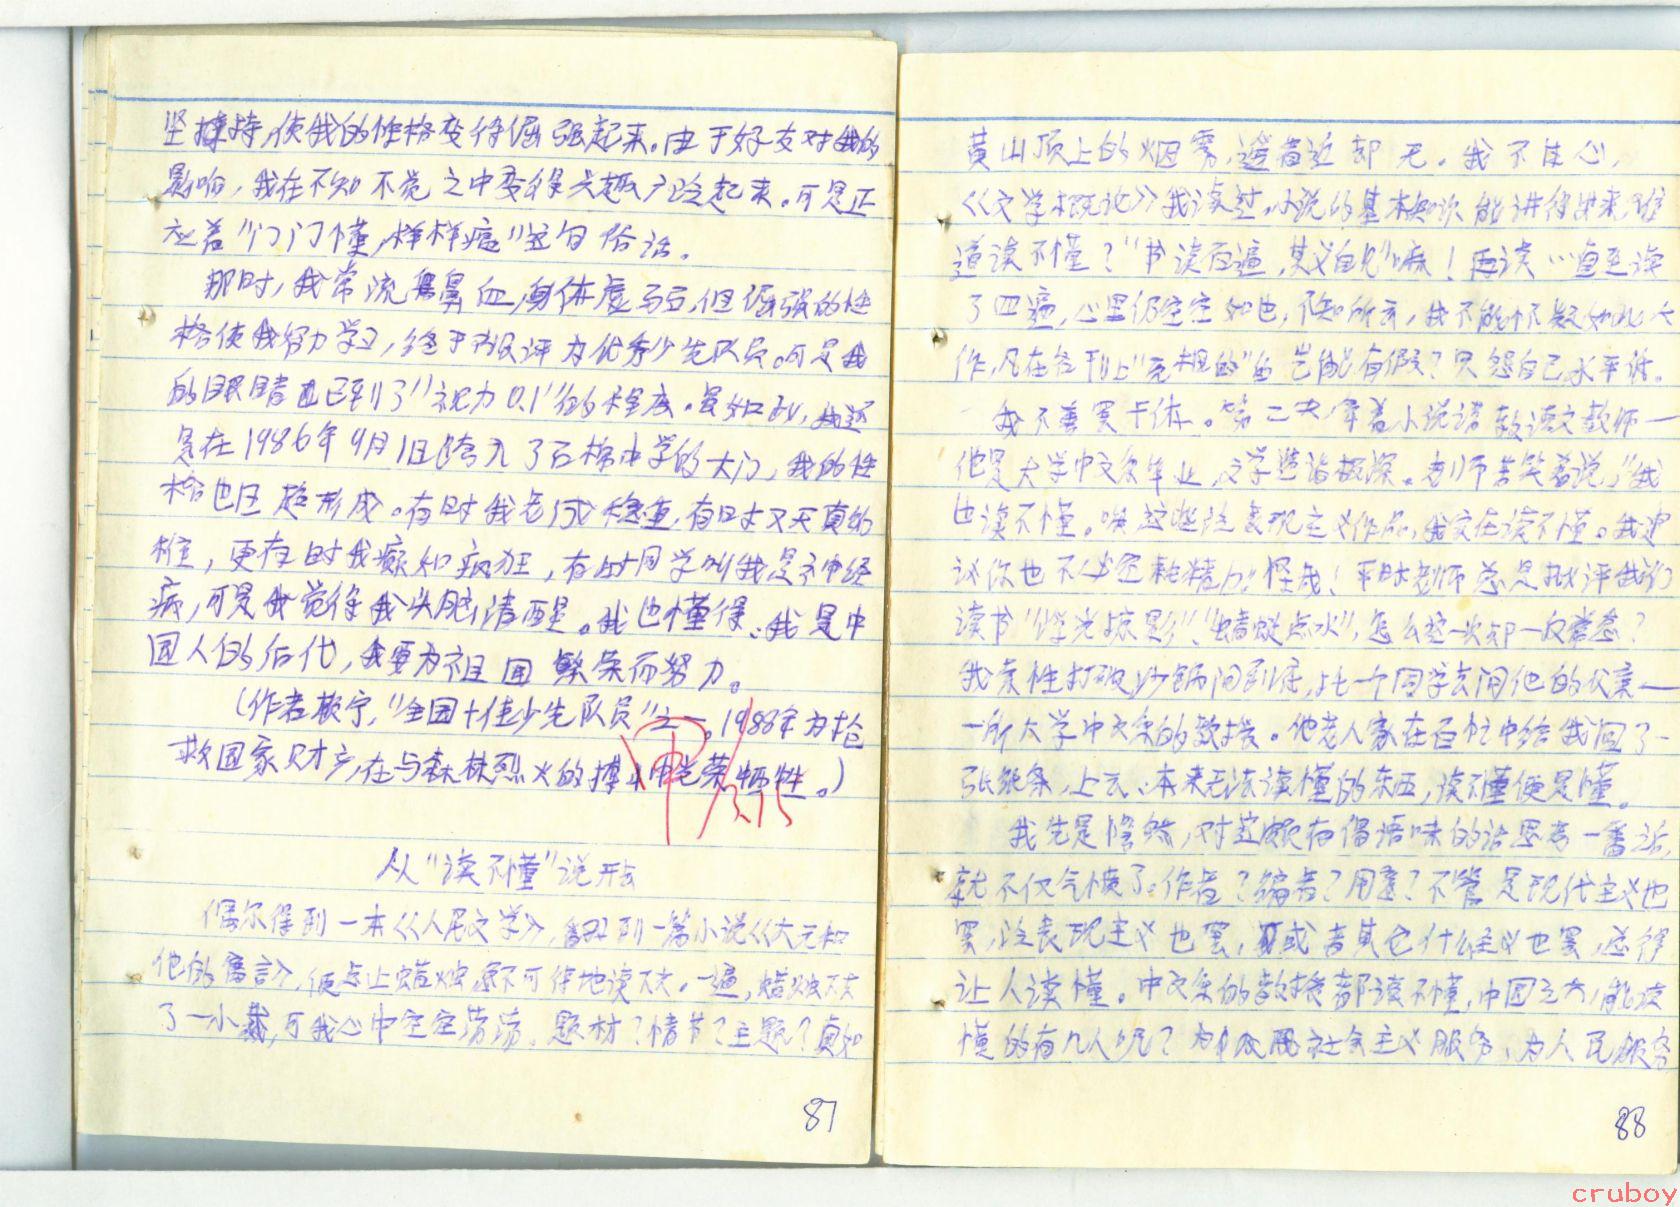 坚持,使我的性格变得倔强起来。由于好友对我的
影响,我在不知不觉之中变得兴趣广泛起来。可是正
应着"门门懂,样样瘟"这句俗话。
那时,我常流鼻血,身体虚弱,但倔强的性
格使我努力学习,终于被评为优秀少先队员。可是我
的眼睛也已到了"视力0.1"的程度。虽如此,我还
是在1986年9月1日跨入了石梯中学的大门,我的性
格也日趋形成。有时我老成稳重,有时又天真幼
稚,更有时我癫和疯狂,有时同学叫我是神经
病,可是我觉得我头脑清醒。我也懂得:我是中
国人的后代,我要为祖国繁荣而努力。
(作者赖宁,"全国十佳少先队员"之一。1988年为抢
救国家财产,在与森林烈火的搏斗中光荣牺牲。)
从"读不懂"说开去
偶尔得到一本《人民文学》,翻到一篇小说《大元和
他的寓言》,便点上蜡烛,急不可待地读一遍,蜡烛
了一小截,可我心中空空荡荡。题材?情节?主题?真如
87
黄山顶上的烟雾,遥看近却无。我不甘心,
《文学概论》我读过,小说的基本知识能讲得出来,难
道读不懂?"书读百遍,其义自见"嘛!再读…直至读
了四遍,心里仍空空如也,不知所云,我不能怀疑如此大
作,凡在各刊上"亮相的"岂能有假?只怨自己水平低。
我不善罢干休。第二天,拿着小说请教语文教师—
他是大学中文系毕业,文学造诣极深。老师苦笑着说,"我
也读不懂。唉这些泛表现主义作品,我实在读不懂。我建
议你也不必空耗精力。"怪哉!平时老师总是批评我们
读书"浮光掠影"、"蜻蜓点水",怎么这一次却一反常态?
我索性打破沙锅问到底,让一个同学去问他的父亲—
一所大学中文系的教授。他老人家在百忙中给我回了一
张纸条,上云:本来无法读懂的东西,读不懂便是懂。
我先是愕然,对这颇有偈语味的话思考一番之后,
就不仅气愤了。作者?编者?用意?不管是现代主义也
罢,泛表现主义也罢,或者其它什么主义也罢,总得
让人读懂。中文系的教授都读不懂,中国之大,能读
懂的有几人呢?为社会主义服务、为人民服务
88
cruboy